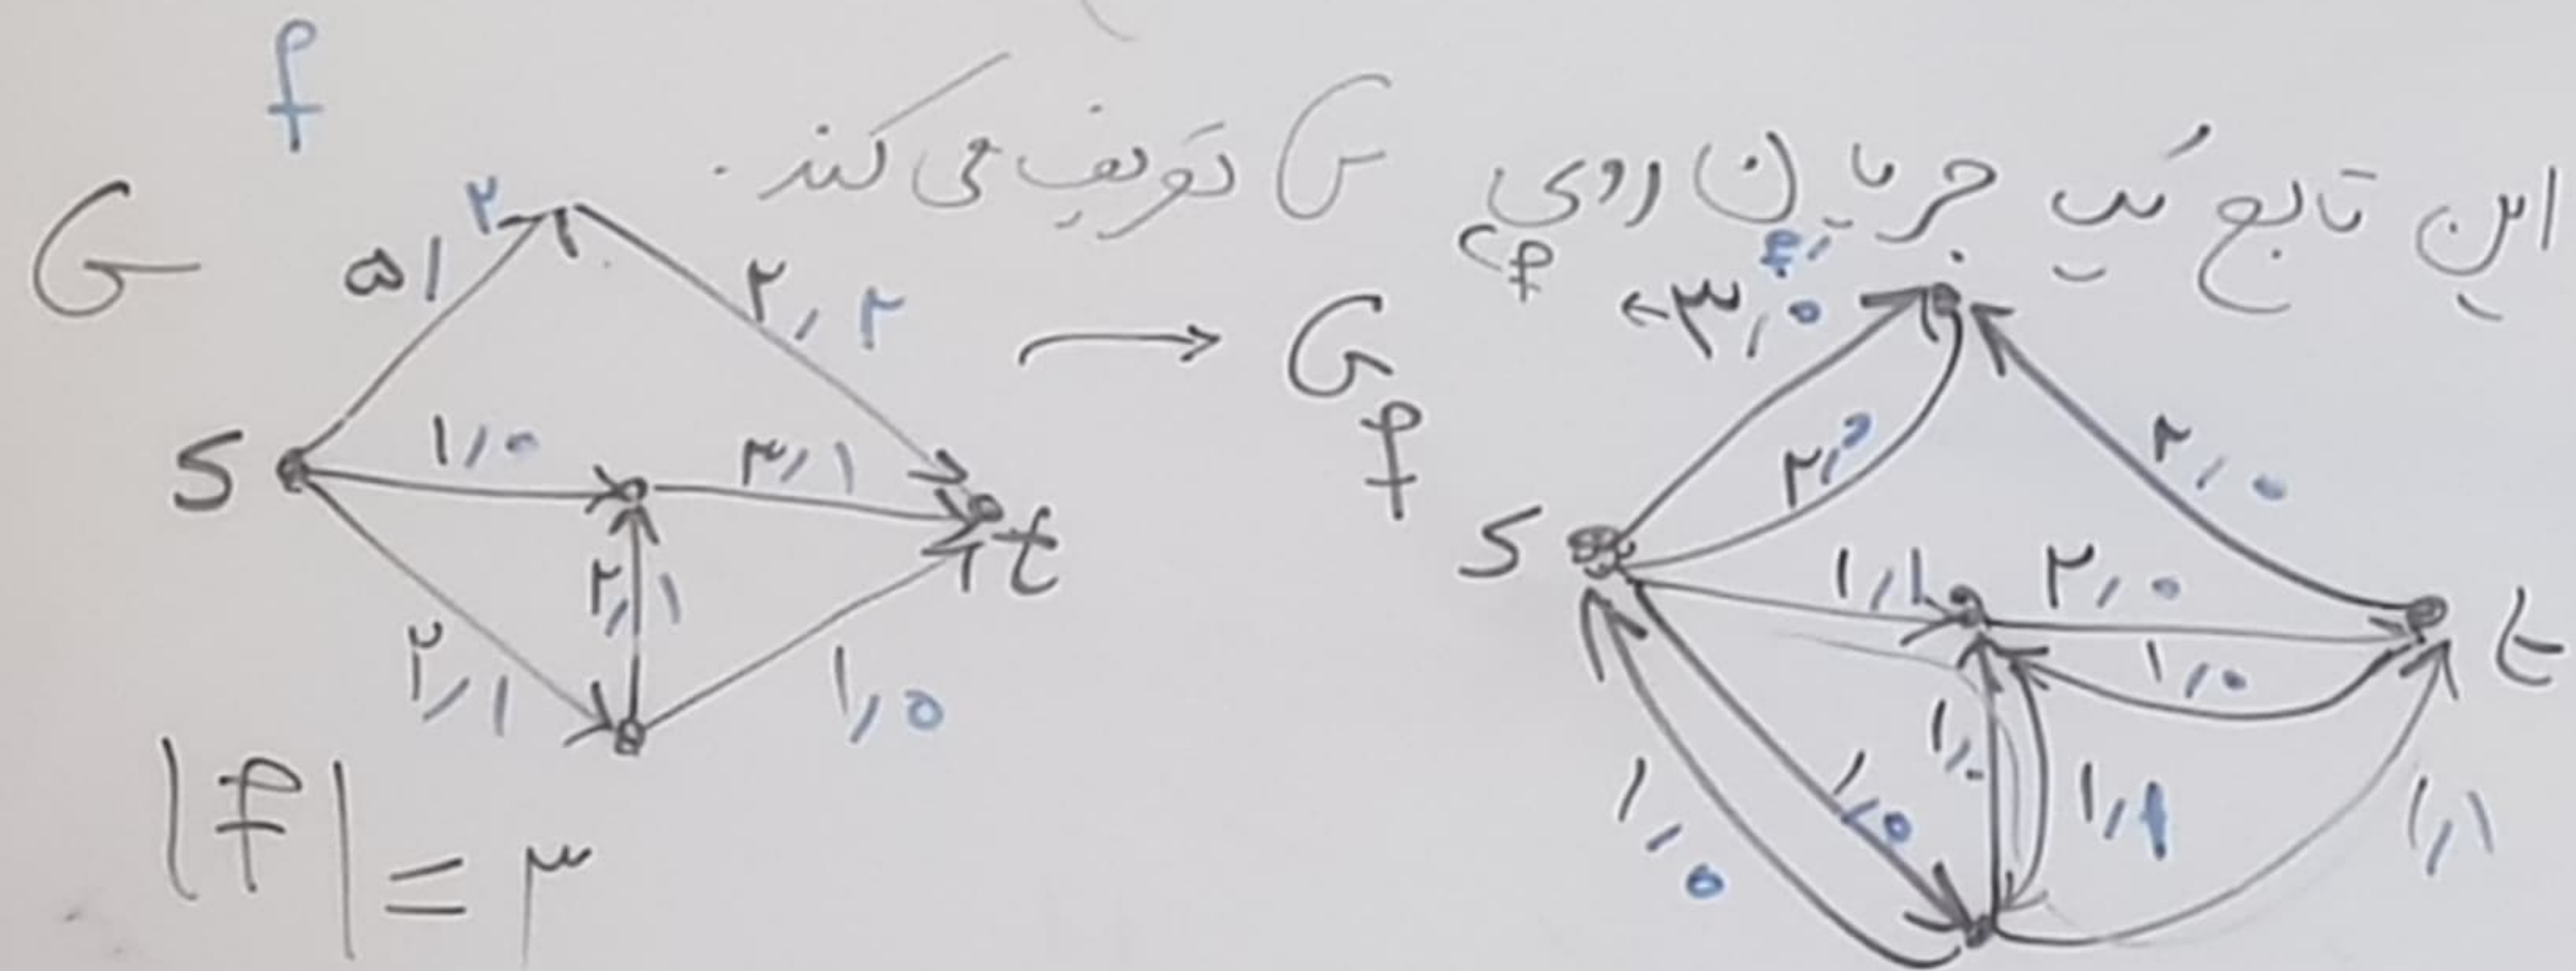 f
این تابع یک جریان روی G تعریف می‌کند.
G
۵/۲
۲,۲
S
۱,۰
۳,۱
t
۲,۱
۲,۱
۱,۰
|f| = ۳
G_f
c_f
←۳,۰
f'
۲,۰
۲,۰
S
۱,۱
۲,۰
t
۱,۰
۱,۰
۱,۰
۱,۰
۱,۱
۱,۱